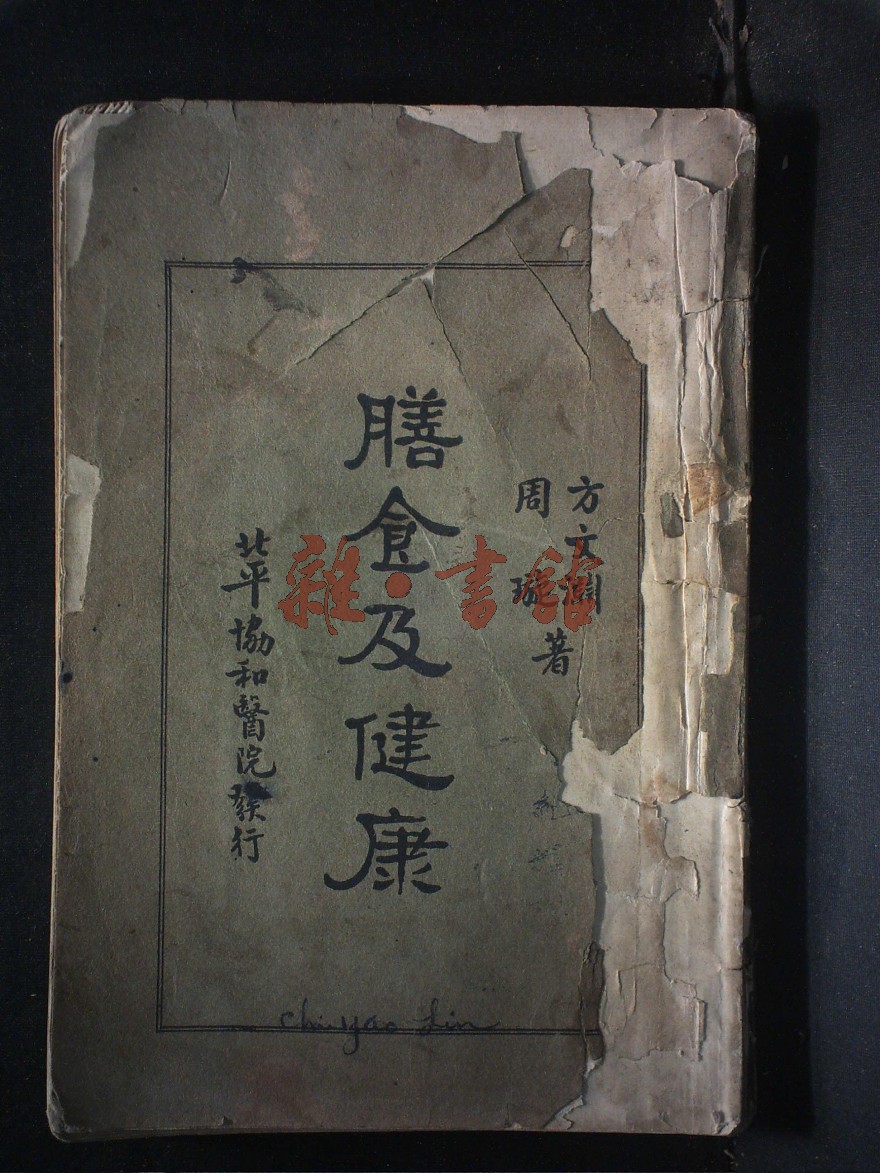 方文淵
周璇
著
膳食及健康
北平協和醫院發行
雜·書館
chi-yao Lin